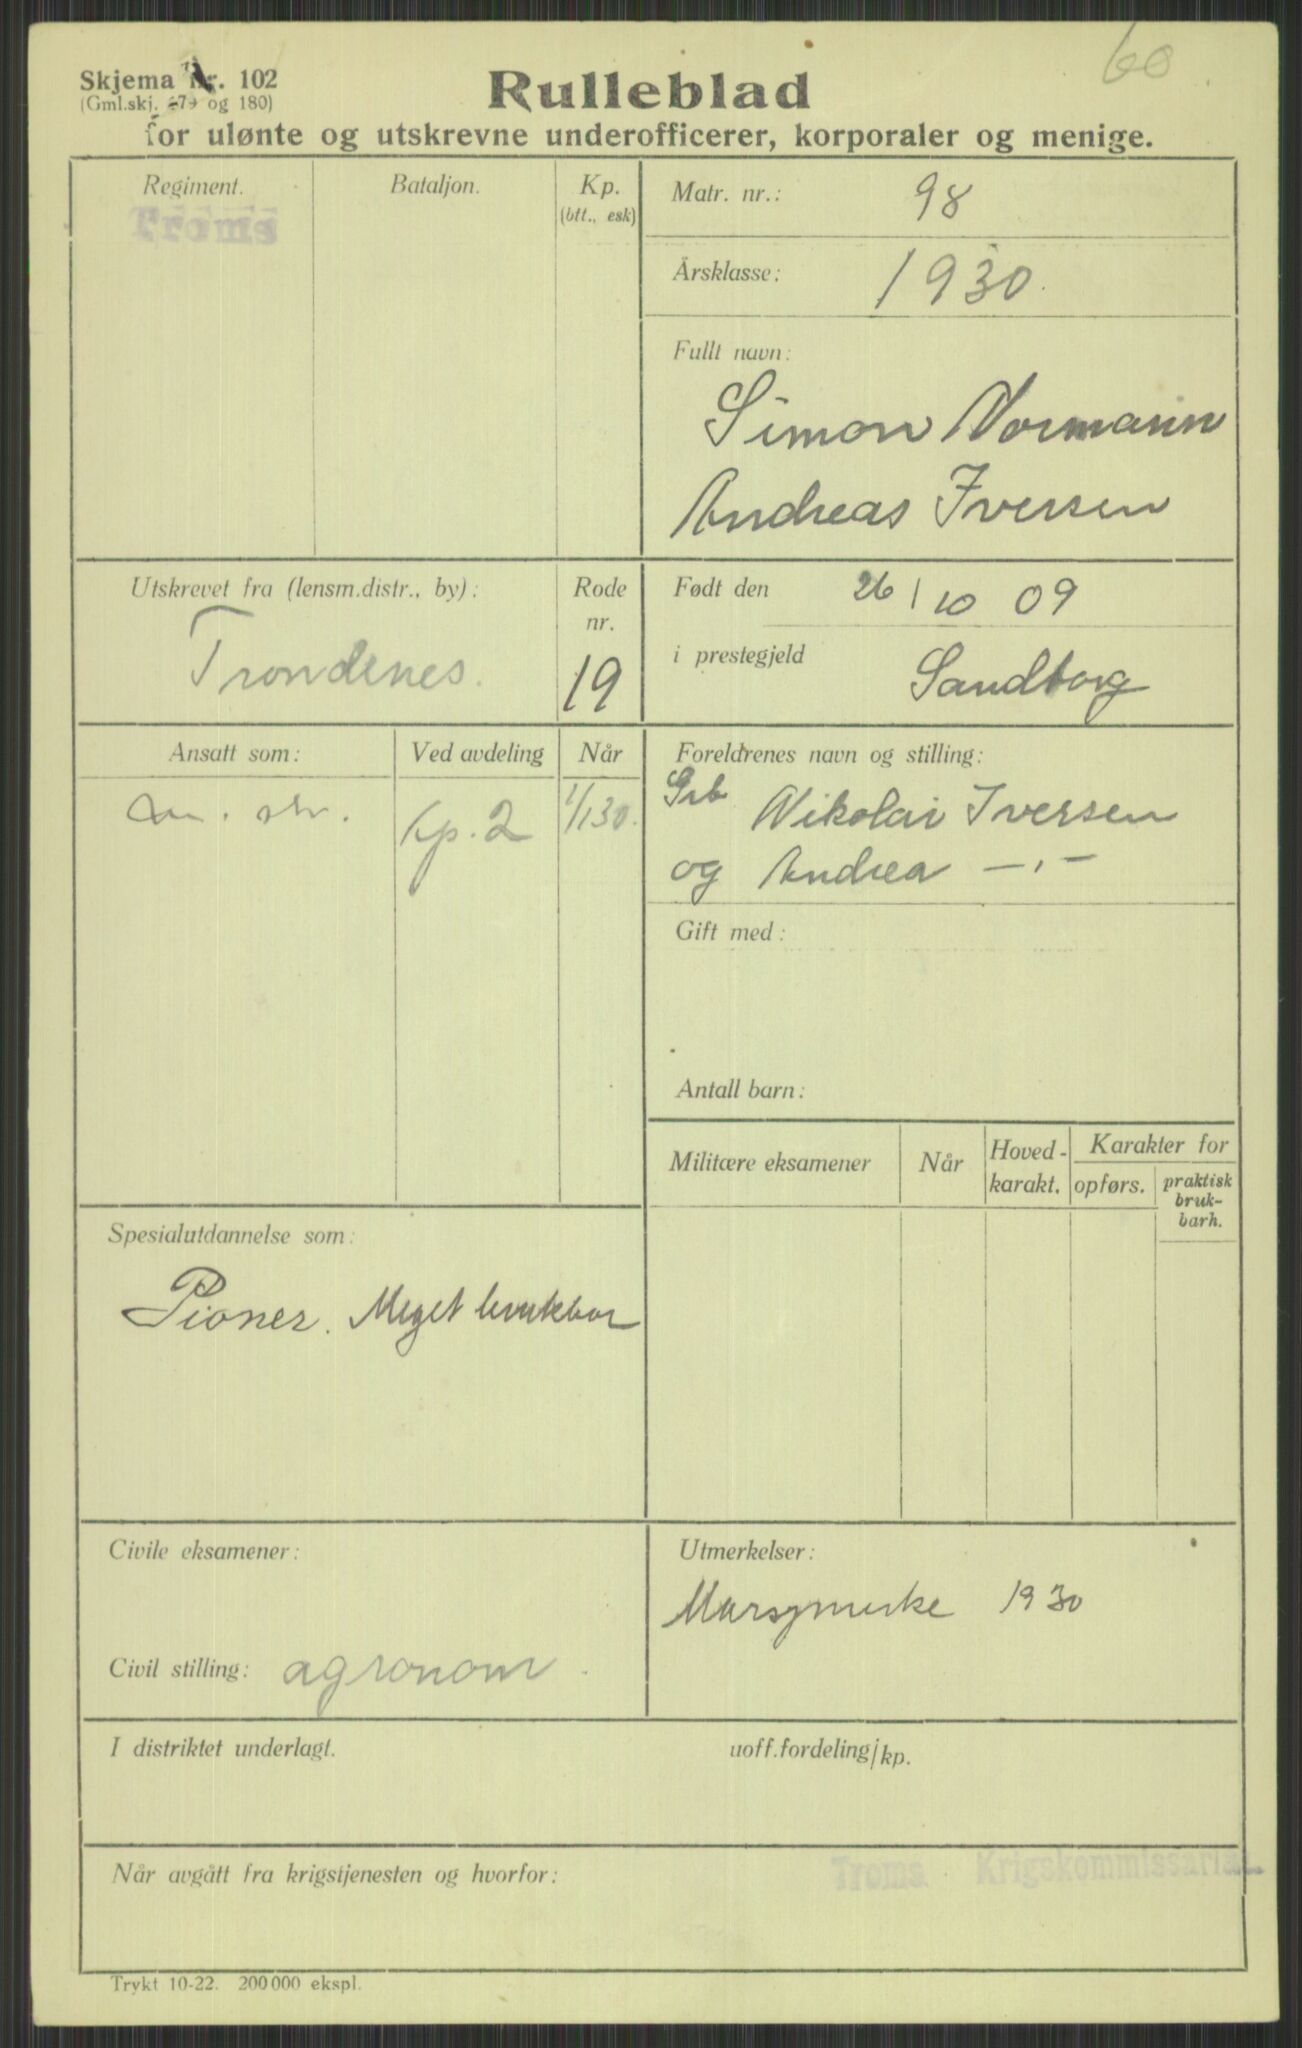 60
Skjema Nr. 102
(Gml.skj. 67 og 180)
Rulleblad
for ulønte og utskrevne underofficerer, korporaler og menige.
Regiment.
Troms
Bataljon.
Kp.
(btt., esk)
Matr. nr.: 98
Årsklasse: 1930.
Fullt navn:
Simon Normann
Andreas Iversen
Utskrevet fra (lensm.distr., by):
Trondenes.
Rode
nr.
19
Født den 26/10 09
i prestegjeld Sandtorg
Ansatt som:
Ved avdeling
Kp. 2
Når
1/1 30.
Foreldrenes navn og stilling:
Grb Nikolai Iversen
og Andrea —,,—
Gift med:
Antall barn:
Militære eksamener
Når
Hoved-
karakt.
Karakter for
opførs.
praktisk
bruk-
barh.
Spesialutdannelse som:
Pioner. Meget brukbar
Civile eksamener:
Civil stilling: agronom.
Utmerkelser:
Marsjmerke 1930
I distriktet underlagt.
uoff.fordeling/kp.
Når avgått fra krigstjenesten og hvorfor:
Troms Krigskommissariat
Trykt 10-22. 200 000 ekspl.